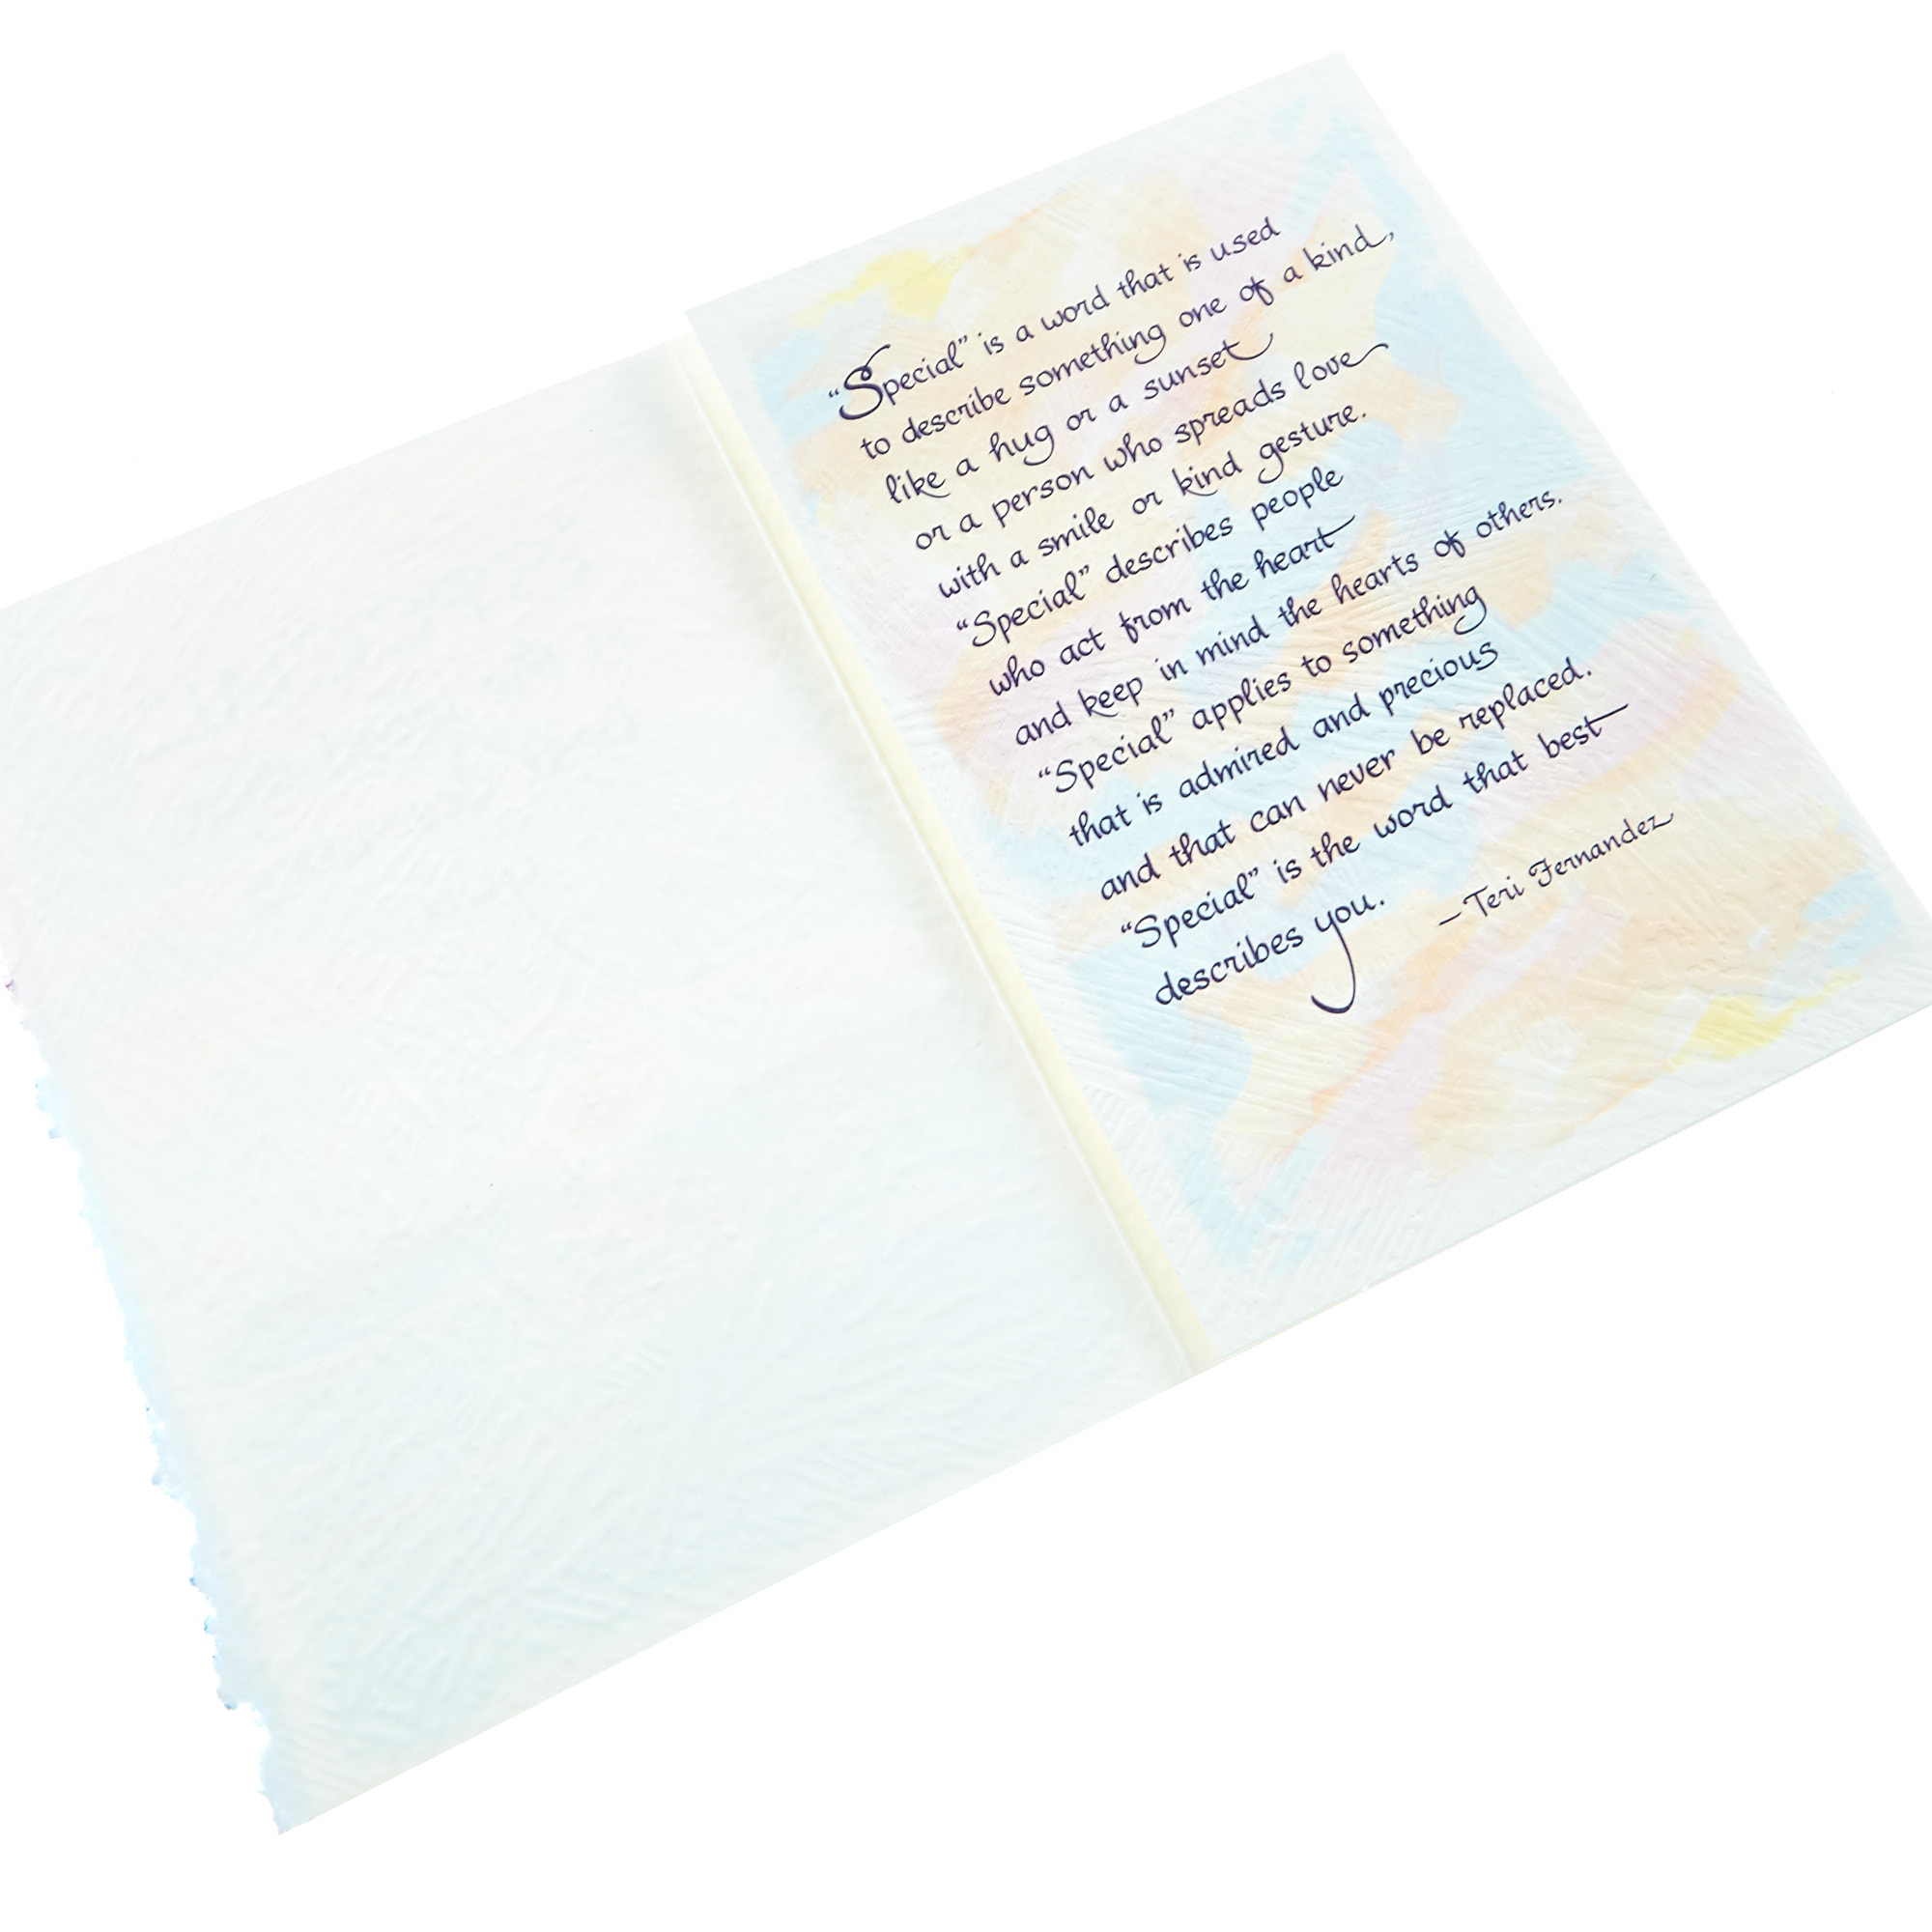 “Special” is a word that is used
to describe something one of a kind,
like a hug or a sunset
or a person who spreads love
with a smile or kind gesture.
“Special” describes people
who act from the heart
and keep in mind the hearts of others.
“Special” applies to something
that is admired and precious
and that can never be replaced.
“Special” is the word that best
describes you.
—Teri Fernandez